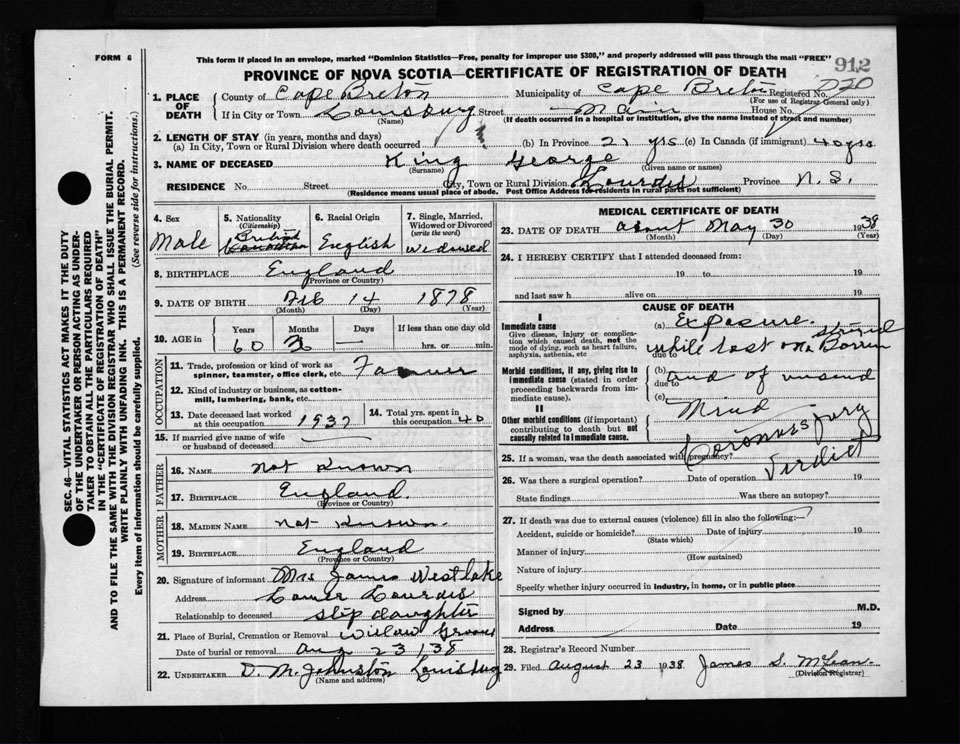 FORM 6
This form if placed in an envelope, marked "Dominion Statistics—Free, penalty for improper use $300," and properly addressed will pass through the mail "FREE"
912
PROVINCE OF NOVA SCOTIA—CERTIFICATE OF REGISTRATION OF DEATH
SEC. 46—VITAL STATISTICS ACT MAKES IT THE DUTY
OF THE UNDERTAKER OR PERSON ACTING AS UNDER-
TAKER TO OBTAIN ALL THE PARTICULARS REQUIRED
IN THE "CERTIFICATE OF REGISTRATION OF DEATH"
AND TO FILE THE SAME WITH THE DIVISION REGISTRAR WHO SHALL ISSUE THE BURIAL PERMIT.
WRITE PLAINLY WITH UNFADING INK. THIS IS A PERMANENT RECORD.
Every item of information should be carefully supplied. (See reverse side for instructions.)
1. PLACE OF DEATH
County of Cape Breton Municipality of Cape Breton Registered No. 220
(For use of Registrar General only)
If in City or Town Louisburg Street Main House No.
(Name) (If death occurred in a hospital or institution, give the name instead of street and number)
2. LENGTH OF STAY (in years, months and days)
(a) In City, Town or Rural Division where death occurred (b) In Province 21 yrs (c) In Canada (if immigrant) 40 yrs
3. NAME OF DECEASED King George
(Surname) (Given name or names)
RESIDENCE No. Street City, Town or Rural Division Lourdis Province N.S.
(Residence means usual place of abode. Post Office Address for residents in rural parts not sufficient)
4. Sex Male
5. Nationality (Citizenship) British
6. Racial Origin English
7. Single, Married, Widowed or Divorced (write the word) Widowed
8. BIRTHPLACE England
(Province or Country)
9. DATE OF BIRTH Feb 14 1878
(Month) (Day) (Year)
10. AGE in Years Months Days If less than one day old
60 3 — hrs. or min.
OCCUPATION
11. Trade, profession or kind of work as spinner, teamster, office clerk, etc. Farmer
12. Kind of industry or business, as cotton-mill, lumbering, bank, etc.
13. Date deceased last worked at this occupation 1937
14. Total yrs. spent in this occupation 40
15. If married give name of wife or husband of deceased.
FATHER
16. NAME not Known
17. BIRTHPLACE England.
(Province or Country)
MOTHER
18. MAIDEN NAME not Known.
19. BIRTHPLACE England
(Province or Country)
20. Signature of informant Mrs James Westlake
Address Lower Lourdis
Relationship to deceased step daughter
21. Place of Burial, Cremation or Removal Willow Grove
Date of burial or removal Aug 23/38
22. UNDERTAKER D. M. Johnston Louisburg
(Name and address)
MEDICAL CERTIFICATE OF DEATH
23. DATE OF DEATH about May 30 1938
(Month) (Day) (Year)
24. I HEREBY CERTIFY that I attended deceased from:
19 to 19
and last saw h alive on 19
CAUSE OF DEATH
I
Immediate cause
Give disease, injury or complication which caused death, not the mode of dying, such as heart failure, asphyxia, asthenia, etc
(a) Exposure.
due to while lost on Barren
Morbid conditions, if any, giving rise to immediate cause (stated in order proceeding backwards from immediate cause).
(b) and of
due to
(c)
Mind
II
Other morbid conditions (if important) contributing to death but not causally related to immediate cause.
Coroners jury
Verdict
25. If a woman, was the death associated with pregnancy?
26. Was there a surgical operation? Date of operation 19
State findings Was there an autopsy?
27. If death was due to external causes (violence) fill in also the following:
Accident, suicide or homicide? Date of injury 19
(State which)
Manner of injury
(How sustained)
Nature of injury
Specify whether injury occurred in industry, in home, or in public place
Signed by M.D.
Address Date 19
28. Registrar's Record Number
29. Filed August 23 1938 James S. McLean.
(Division Registrar)